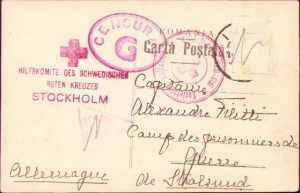 ROMANIA
Carta Postala
CENSUR
G
HILFSKOMITE DES SCHWEDISCHEN
ROTEN KREUZES
STOCKHOLM
Capitaine
Alexandre Filitti
Camp des prisonniers de
Guerre
de Stralsund
Allemagne